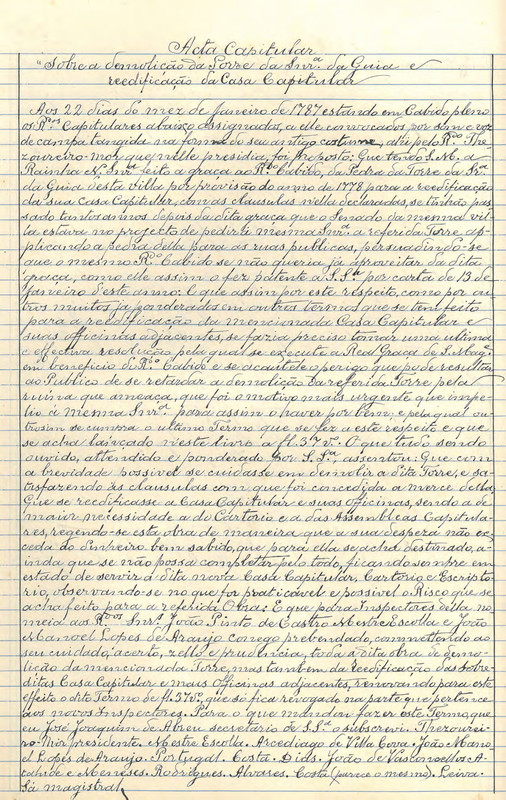 Acta Capitular
"Sobre a demolição da Torre da Snr.ª da Guia e
reedificação da Casa Capitular
Aos 22 dias do mez de Janeiro de 1787 estando em Cabido pleno
os R.dos Capitulares abaixo assignados, a elle convocados por som e voz
de campa tangida na forma do seu antigo costume, ahi pelo R.do The-
zoureiro-mor que nelle presidia, foi proposto: Que tendo S. M. a
Rainha N. Snr.ª feito a graça ao R.do Cabido, da Pedra da Torre da Sr.ª
da Guia desta villa por provisão do anno de 1778 para a reedificação
da sua Casa Capitular, com as clausulas nella declaradas, se tinhão pas-
sado tantos annos depois da dita graça que o Senado da mesma vil-
la estava no projecto de pedir á mesma Snr.ª a referida Torre ap-
plicando a pedra della para as ruas publicas, persuadindo-se
que o mesmo R.do Cabido se não queria já aproveitar da dita
graça, como elle assim o fez patente a S. S.ª por carta de 13 de
Janeiro d'este anno: E que assim por este respeito, como por ou-
tros muitos já ponderados em outros termos que se tem feito
para a reedificação da mencionada Casa Capitular e
suas officinas adjacentes, se fazia preciso tomar uma ultima
e effectiva resolução pela qual se execute a Real Graça de S. Mag.e
em beneficio do R.do Cabido e se acautele o perigo que pode resultar
ao Publico de se retardar a demolição da referida Torre pela
ruina que ameaça, que foi o motivo mais urgente que impe-
lio á mesma Snr.ª para assim o haver por bem; e pela qual ou-
trosim se cumpra o ultimo Termo que se fez a este respeito e que
se acha lavrado n'este livro a fl. 37 v.º O que tudo sendo
ouvido, attendido e ponderado por S. S.ª, assentou: Que com
a brevidade possivel se cuidasse em demolir a dita Torre, e sa-
tisfazendo ás clausulas com que foi concedida a merce della,
Que se reedificasse a Casa Capitular e suas officinas, sendo a de
maior necessidade a do Cartorio e a das Assembleas Capitula-
res, regendo-se esta obra de maneira que a sua despeza não ex-
ceda do dinheiro bem sabido, que para ella se acha destinado, a-
inda que se não possa completar pelo todo, ficando sempre em
estado de servir á dita nova Casa Capitular, Cartorio e Escripto-
rio, observando-se no que for praticavel e possivel o Risco que se
acha feito para a referida Obra: E que para Inspectores della no-
meia aos R.dos Snr.s João Pinto de Castro Mestre Escolla e João
Manoel Lopes de Araujo conego prebendado, commettendo ao
seu cuidado, acerto, zello e prudencia, toda a dita obra de demo-
lição da mencionada Torre, mas tambem da reedificação das sobre-
ditas Casa Capitular e mais officinas adjacentes, renovando para este
effeito o dito Termo de fl. 37 v.º, que só fica revogado na parte que pertence
aos novos Inspectores. Para o que mandou fazer este Termo, que
eu José Joaquim de Abreu secretario de S. S.ª o subscrevi. Thezourei-
ro-Mór presidente. Mestre Escolla. Arcediago de Villa Cova. João Mano-
el Lopes de Araujo. Portugal. Costa. Dids. João de Vasconcellos A-
cahide e Meneses. Rodrigues. Alvares. Costa (parece o mesmo). Leiva.
Sá magistral.